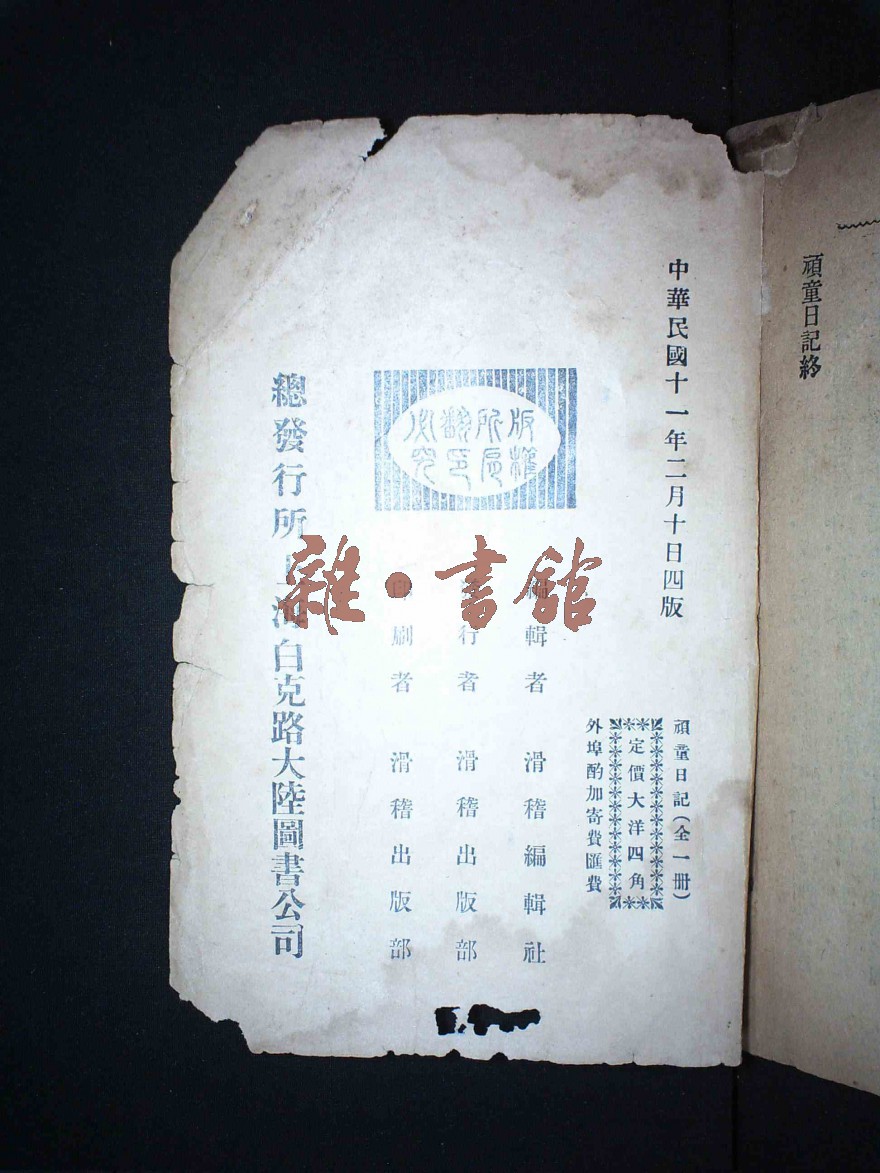 頑童日記終
中華民國十一年二月十日四版
頑童日記(全一冊)
定價大洋四角
外埠酌加寄費匯費
版權所有翻印必究
編輯者 滑稽編輯社
發行者 滑稽出版部
印刷者 滑稽出版部
總發行所上海白克路大陸圖書公司
雜·書館